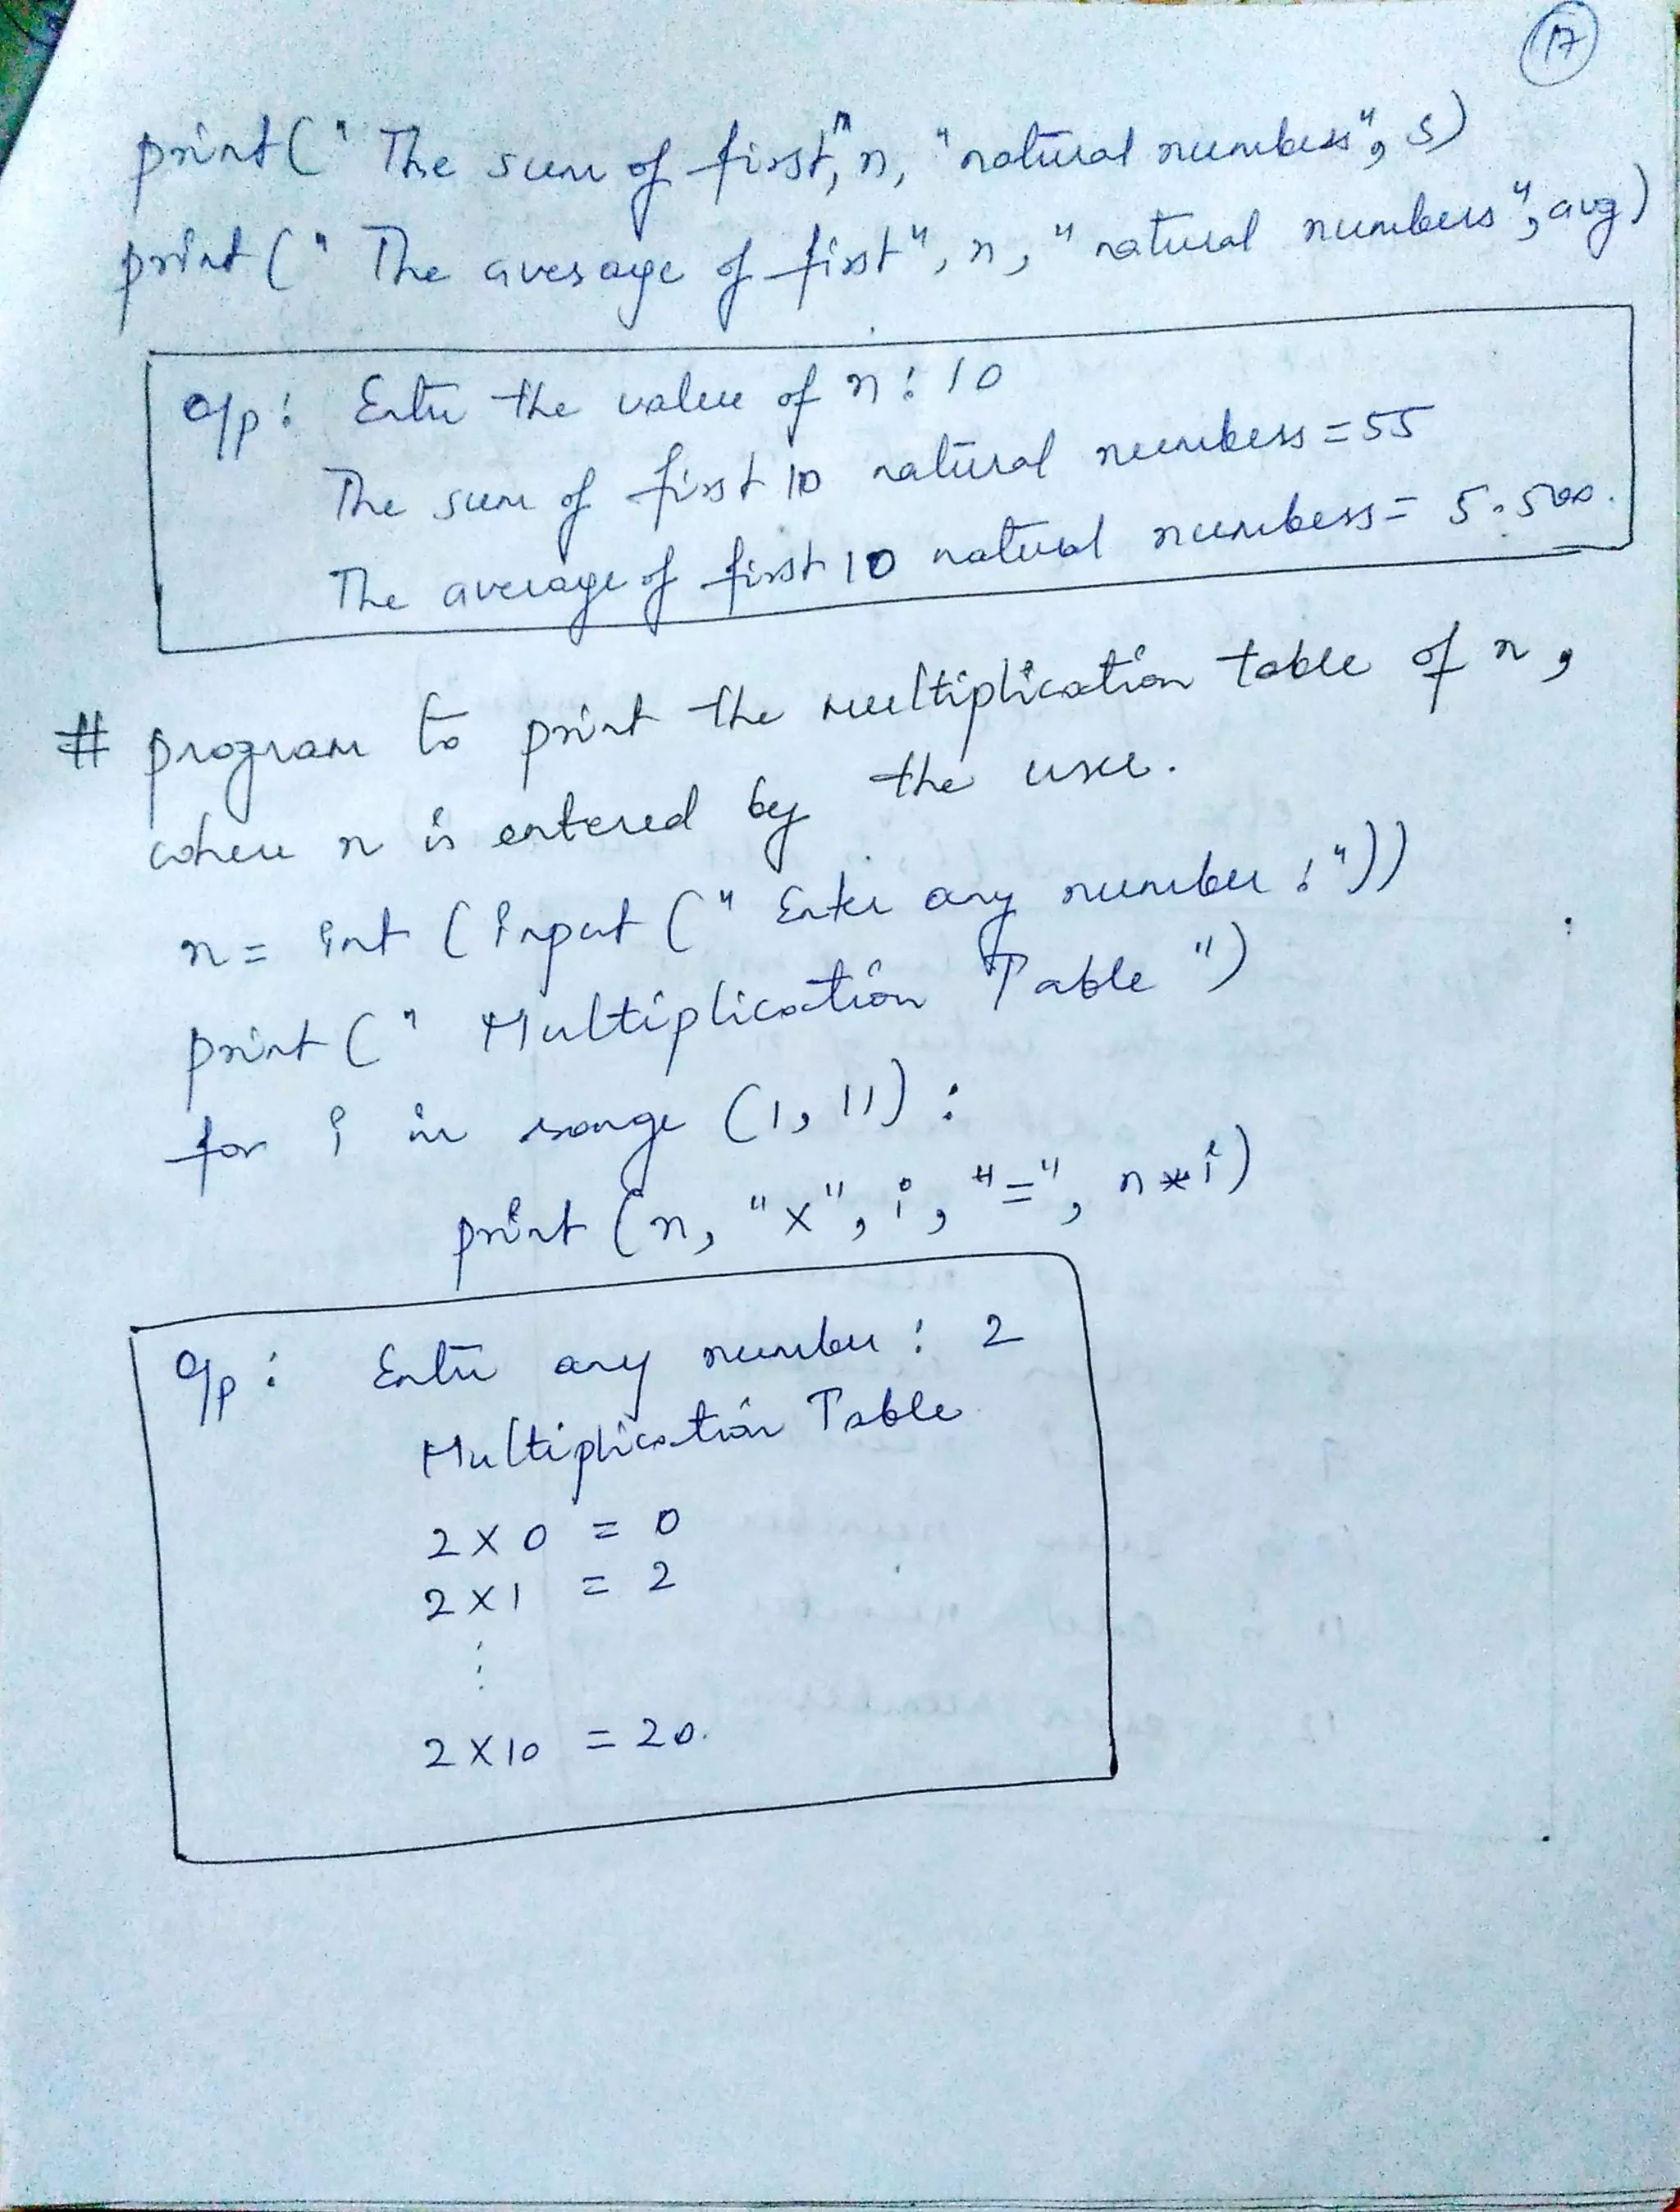 17
print (" The sum of first," n, "natural numbers", s)
print (" The average of first", n, "natural numbers", avg)
o/p: Enter the value of n: 10
The sum of first 10 natural numbers = 55
The average of first 10 natural numbers = 5.500.
# program to print the multiplication table of n,
where n is entered by the user.
n = int (input (" Enter any number :"))
print (" Multiplication Table ")
for i in range (1, 11) :
print (n, "x", i, "=", n*i)
o/p: Enter any number : 2
Multiplication Table
2 x 0 = 0
2 x 1 = 2
⋮
2 x 10 = 20.